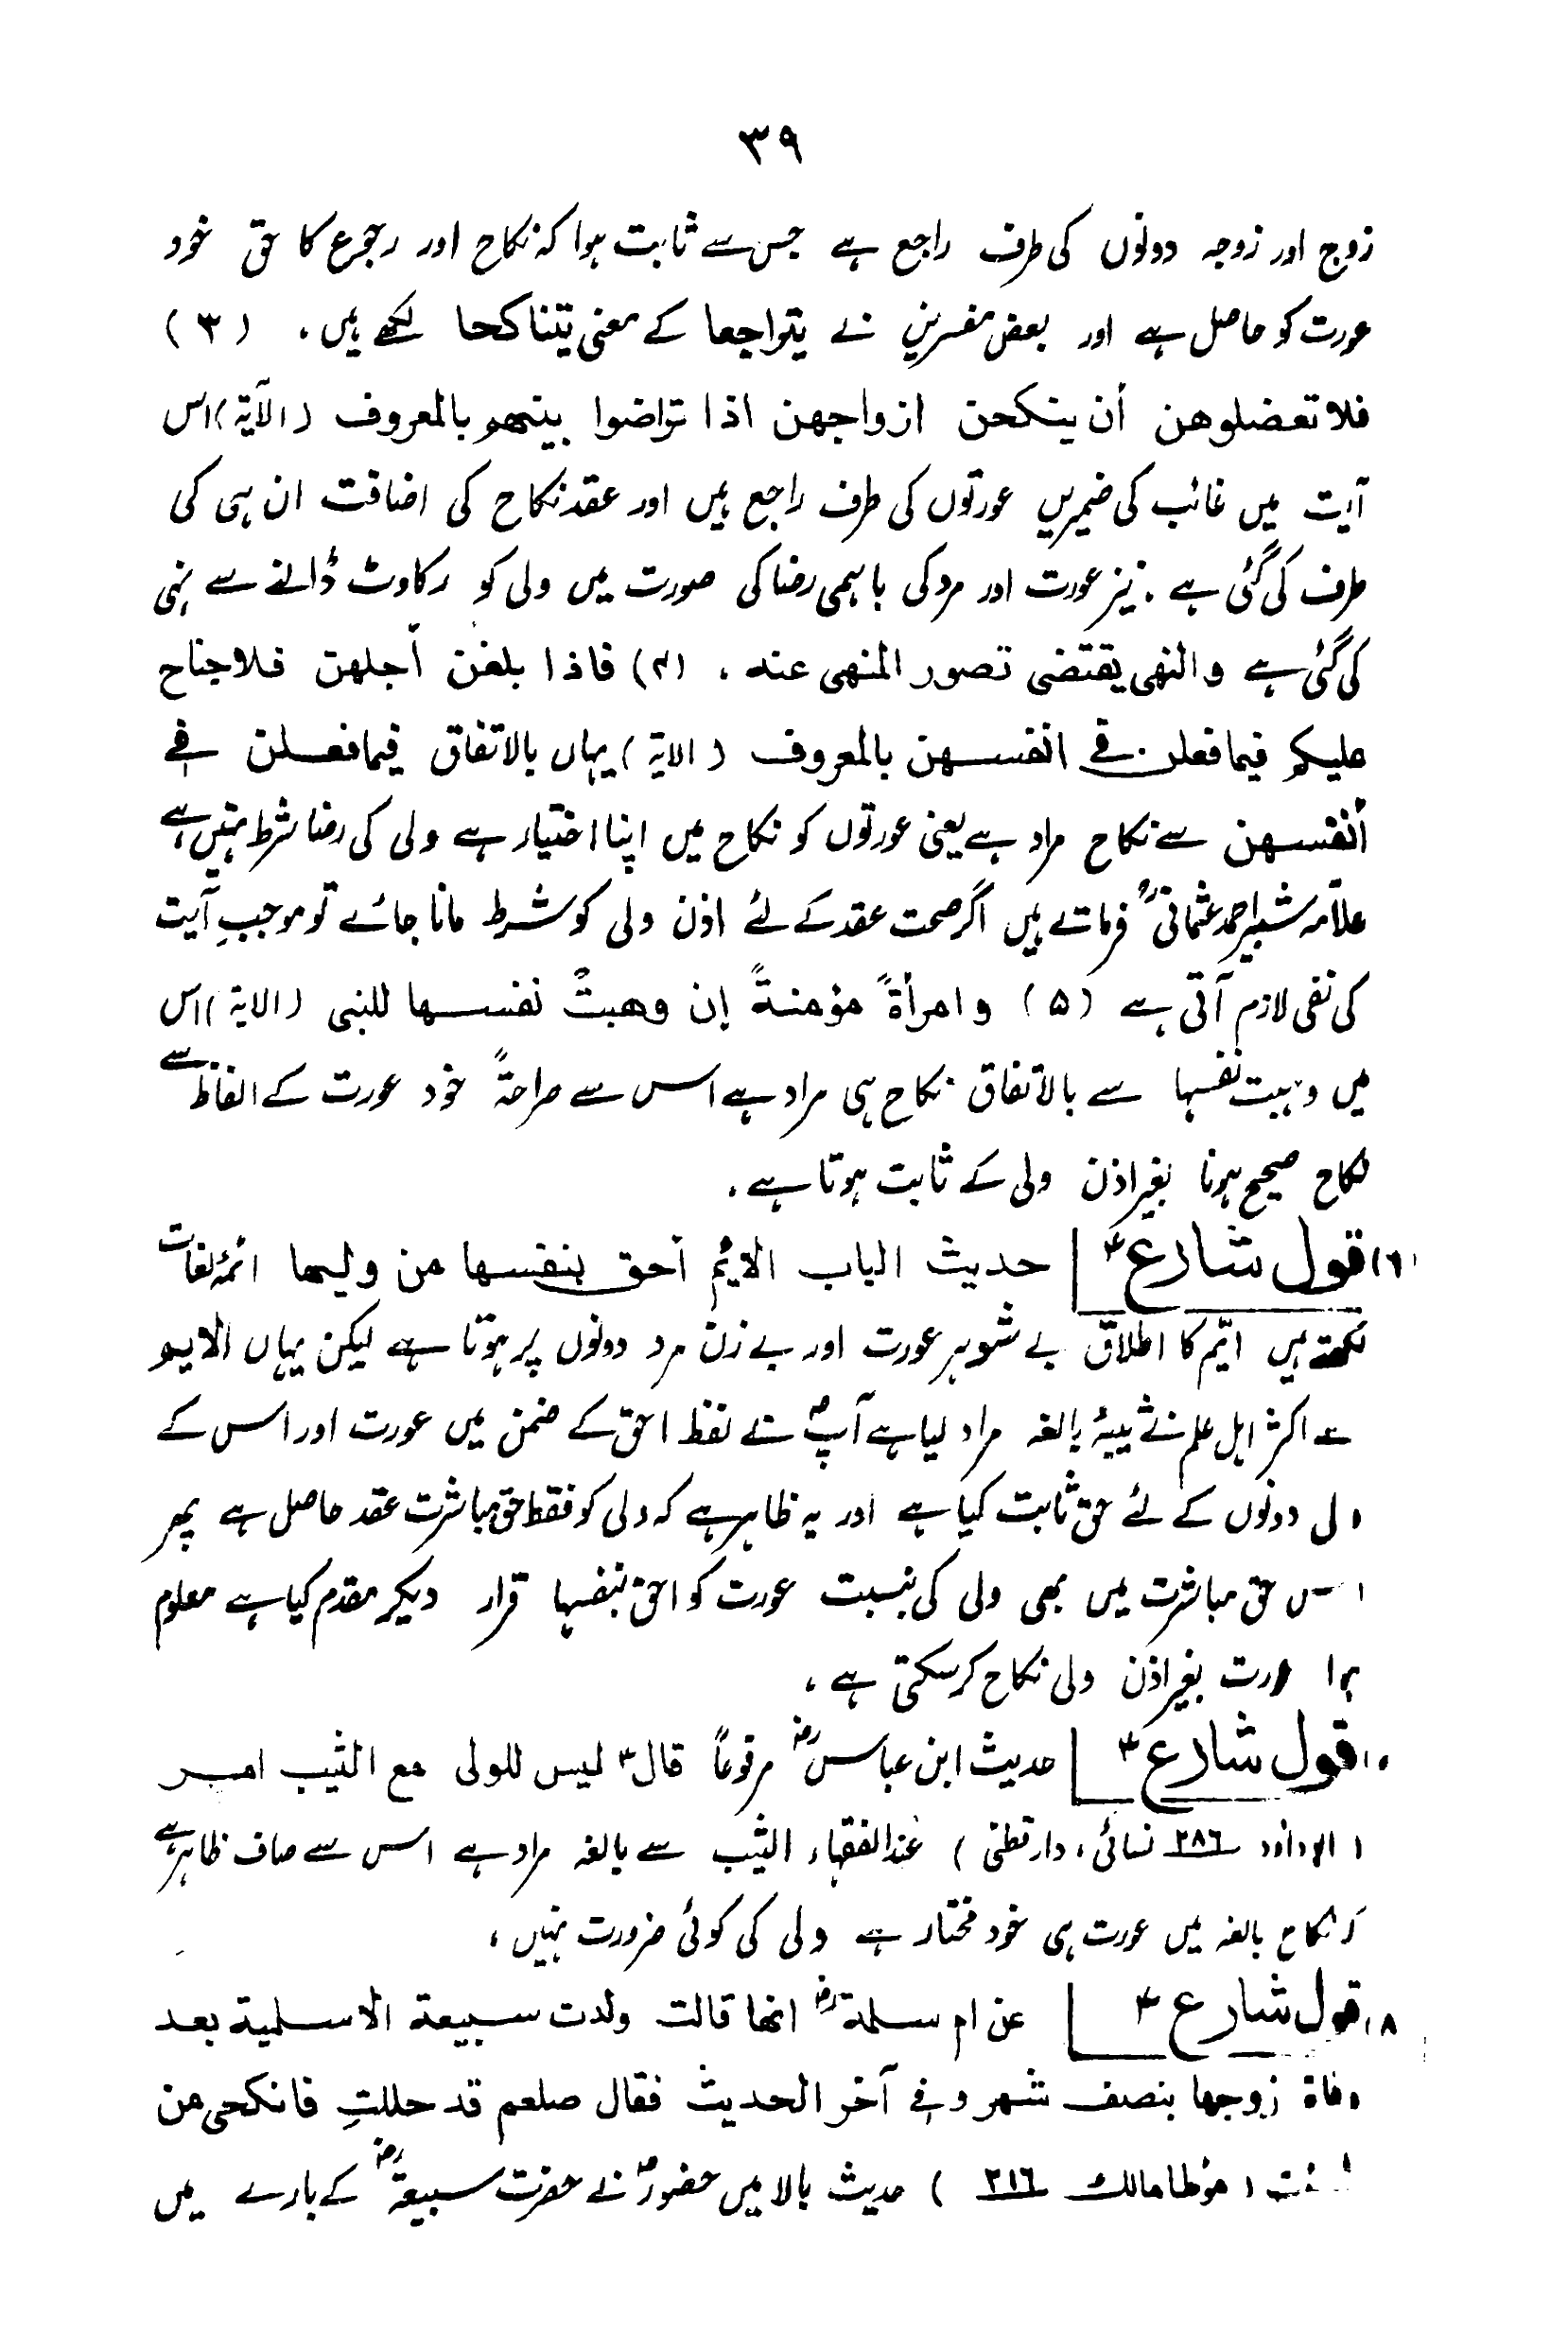 ۳۹
زوج اور زوجہ دونوں کی طرف راجع ہے جس سے ثابت ہوا کہ نکاح اور رجوع کا حق خود
عورت کو حاصل ہے اور بعض مفسرین نے یتراجعا کے معنی یتناکحا لکھے ہیں ، (۳)
فلا تعضلوهن أن ینکحن ازواجهن اذا تراضوا بینهم بالمعروف (الآیة) اس
آیت میں غائب کی ضمیریں عورتوں کی طرف راجع ہیں اور عقد نکاح کی اضافت ان ہی کی
طرف کی گئی ہے . نیز عورت اور مرد کی باہمی رضا کی صورت میں ولی کو رکاوٹ ڈالنے سے نہی
کی گئی ہے والنهی یقتضی تصور المنهی عنه ، (۴) فاذا بلغن أجلهن فلاجناح
علیکم فیما فعلن فی انفسهن بالمعروف (الایة) یہاں بالاتفاق فیما فعلن فی
أنفسهن سے نکاح مراد ہے یعنی عورتوں کو نکاح میں اپنا اختیار ہے ولی کی رضا شرط نہیں ہے
علّامہ شبیر احمد عثمانیؒ فرماتے ہیں اگر صحت عقد کے لئے اذن ولی کو شرط مانا جائے تو موجبِ آیت
کی نفی لازم آتی ہے (۵) وامرأةً مؤمنةً إن وهبتْ نفسها للنبی (الایة) اس
میں وہبت نفسہا سے بالاتفاق نکاح ہی مراد ہے اس سے صراحۃً خود عورت کے الفاظ سے
نکاح صحیح ہونا بغیر اذن ولی کے ثابت ہوتا ہے .
(۶) قول شارعؑ حدیث الباب الایّم أحق بنفسها من ولیها ائمۂ لغات
لکھتے ہیں ایّم کا اطلاق بے شوہر عورت اور بے زن مرد دونوں پر ہوتا ہے لیکن یہاں الایم
سے اکثر اہل علم نے ثیبۂ بالغہ مراد لیا ہے آپؐ نے لفظ احق کے ضمن میں عورت اور اس کے
ولی دونوں کے لئے حق ثابت کیا ہے اور یہ ظاہر ہے کہ ولی کو فقط حق مباشرت عقد حاصل ہے پھر
اس حق مباشرت میں بھی ولی کی بنسبت عورت کو احق بنفسہا قرار دیکر مقدم کیا ہے معلوم
ہوا عورت بغیر اذن ولی نکاح کرسکتی ہے ،
قول شارعؑ حدیث ابن عباسؓ مرفوعاً قالؑ لیس للولی مع الثیب امر
(ابوداؤد ۲۸۶ نسائی ، دارقطنی) عند الفقہاء الثیب سے بالغہ مراد ہے اس سے صاف ظاہر ہے
کہ نکاح بالغہ میں عورت ہی خود مختار ہے ولی کی کوئی ضرورت نہیں ،
۸) قول شارعؑ عن ام سلمةؓ انها قالت ولدت سبیعة الاسلمیة بعد
وفاة زوجها بنصف شهر وفی آخر الحدیث فقال صلعم قد حللتِ فانکحی من
شئت (مؤطا مالک ۲۱۶) حدیث بالا میں حضورؐ نے حضرت سبیعہؓ کے بارے میں